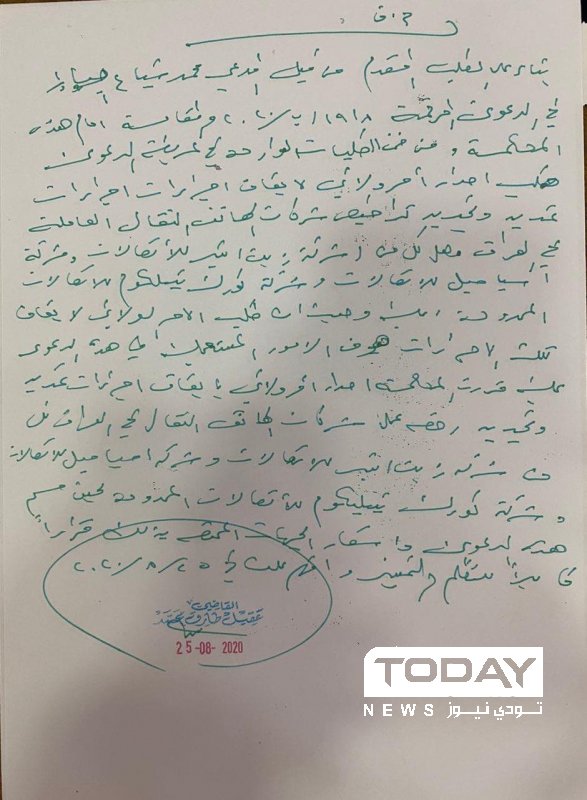 ق.م
بناء على الطلب المقدم من قبل المدعي محمد شياع
في الدعوى المرقمة ١٩١٨/ب/٢٠٢٠ والمقامة امام هذه
المحكمة ومن ضمن الطلبات الواردة في عريضة الدعوى
هي اصدار أمر ولائي لايقاف اجراءات اجراءات
تمديد وتجديد تراخيص شركات الهاتف النقال العاملة
في العراق وهي كل من شركة زين اثير للأتصالات وشركة
آسيا سيل للاتصالات وشركة كورك تيليكوم للاتصالات
المحدودة وحيث ان طلب الامر الولائي لايقاف
تلك الاجراءات هو من الامور المستعجلة في هذه الدعوى
عليه قررت المحكمة اصدار أمر ولائي بايقاف اجراءات تمديد
وتجديد رخصة عمل شركات الهاتف النقال في العراق كل
من شركة زين اثير للاتصالات وشركة اسيا سيل للاتصالات
وشركة كورك تيليكوم للأتصالات المحدودة لحين حسم
هذه الدعوى واشعار الجهات المختصة بذلك قراراً
قابلاً للتظلم والتمييز وافهم علنا في ٢٥/٨/٢٠٢٠
القاضي
25-08-2020
TODAY
NEWS تودي نيوز